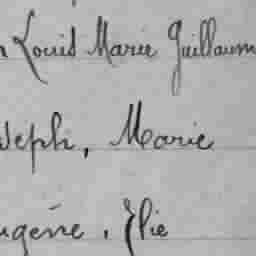 n Louis Marie Guillaum
seph, Marie
ugène, Elie